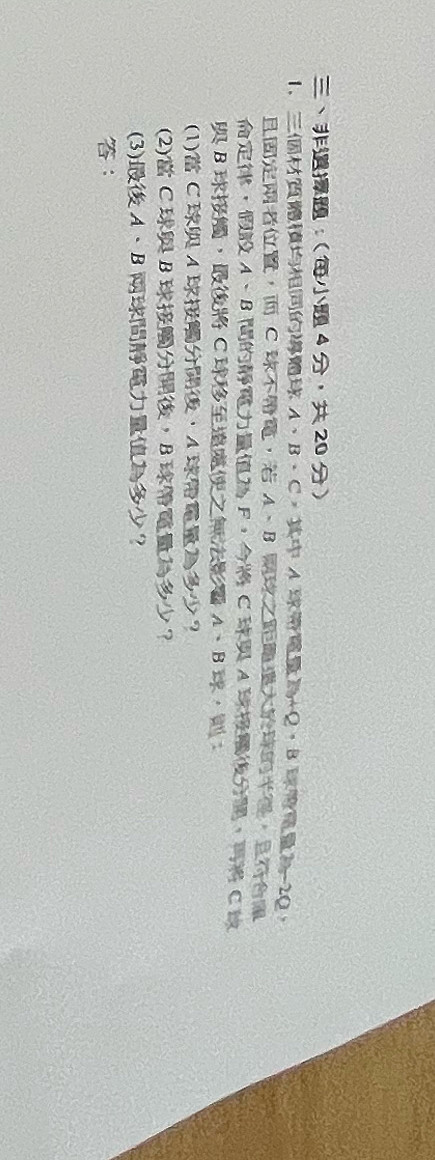 三、非選擇題：(每小題 4 分，共 20 分)
1. 三個材質體積均相同的導體球 A、B、C，其中 A 球帶電量為+Q，B 球帶電量為-2Q，
且固定兩者位置，而 C 球不帶電，若 A、B 兩球之距離遠大於球的半徑，且符合庫
侖定律，假設 A、B 間的靜電力量值為 F，今將 C 球與 A 球接觸後分開，再將 C 球
與 B 球接觸，最後將 C 球移至遠處使之無法影響 A、B 球，則：
(1)當 C 球與 A 球接觸分開後，A 球帶電量為多少？
(2)當 C 球與 B 球接觸分開後，B 球帶電量為多少？
(3)最後 A、B 兩球間靜電力量值為多少？
答：